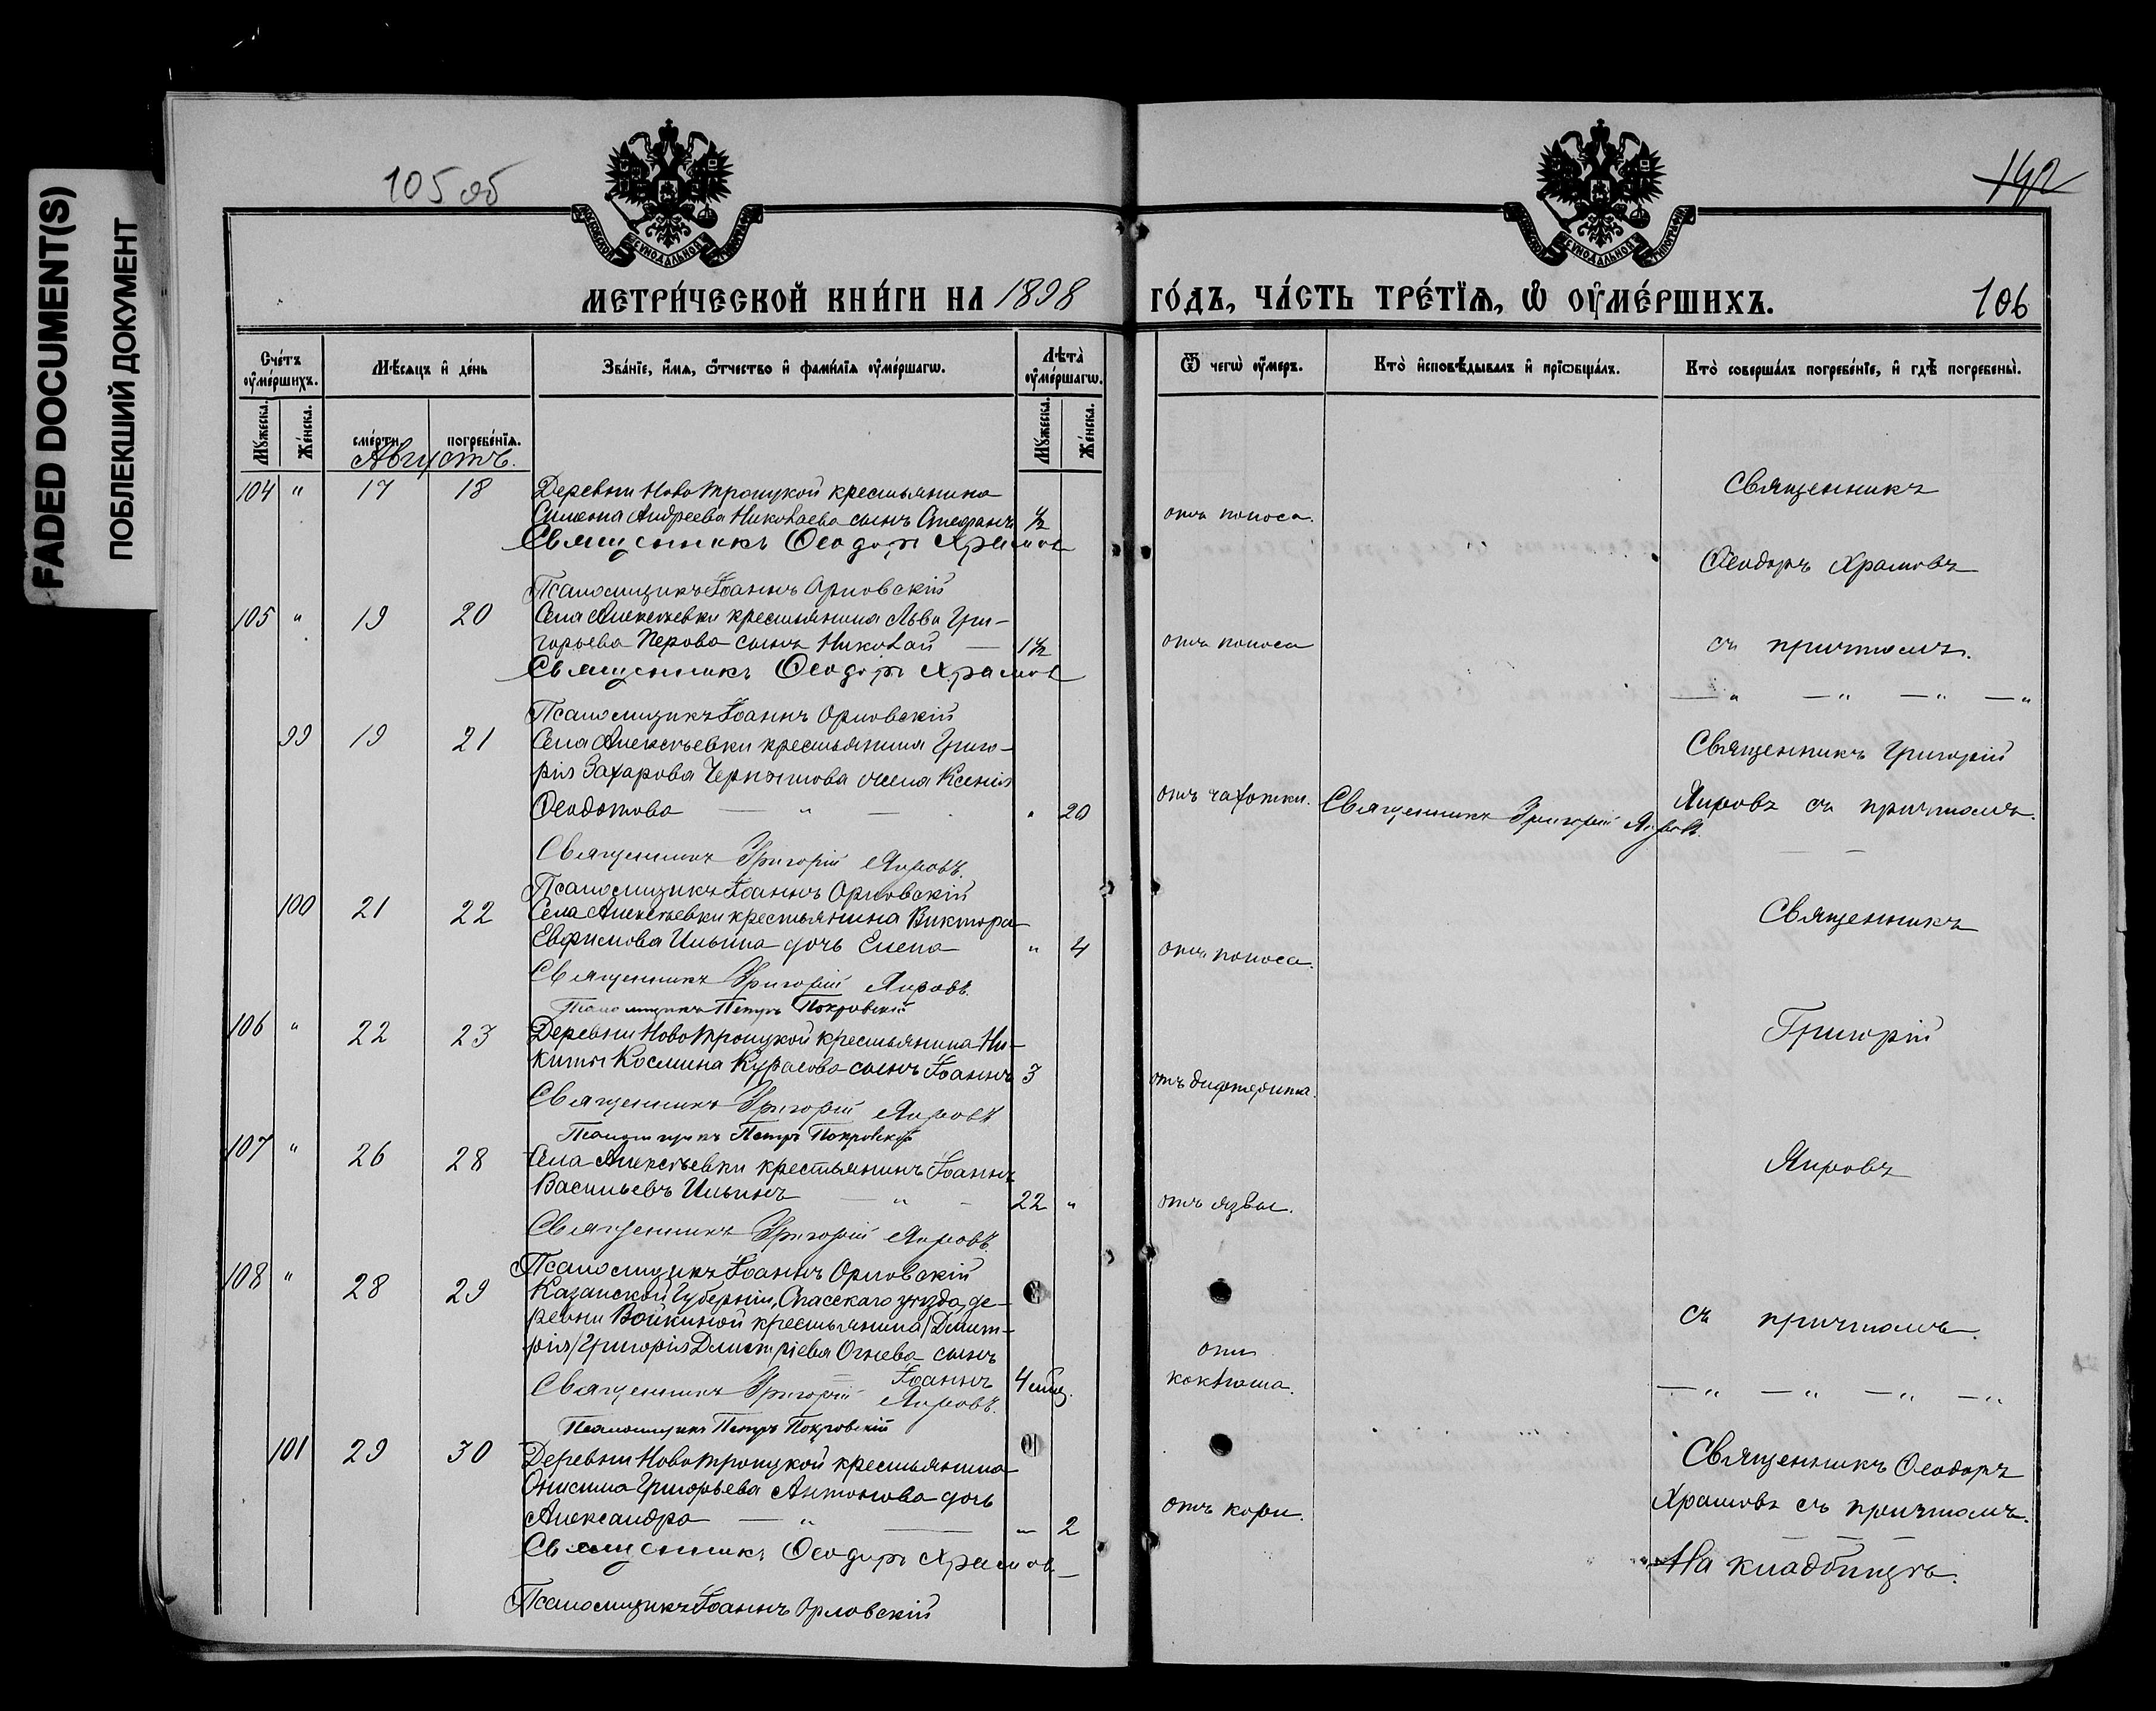 FADED DOCUMENT(S)
ПОБЛЕКШИЙ ДОКУМЕНТ
105 об
142
106
МОСКОВСКОЙ СѴНОДАЛЬНОЙ ТИПОГРАФІИ
МОСКОВСКОЙ СѴНОДАЛЬНОЙ ТИПОГРАФІИ
МЕТРИ́ЧЕСКОЙ КНИ́ГИ НА 1898 ГО́ДЪ, ЧА́СТЬ ТРЕ́ТЇѦ, Ѡ ОУ҆МЕ́РШИХЪ.
Счетъ оумершихъ.
Мѣсяцъ и день
Званіе, имя, отчество и фамилія оумершаго.
Лѣта оумершаго.
Ѿ чего оумеръ.
Кто исповѣдывалъ и пріобщалъ.
Кто совершалъ погребеніе, и гдѣ погребены.
Мужеска.
Женска.
смерти.
погребенія.
Мужеска.
Женска.
Августъ.
104 " 17 18 Деревни Новотроицкой крестьянина
Симеона Андреева Николаева сынъ Стефанъ ½ отъ поноса.
Священникъ Ѳеодоръ Храмовъ
Псаломщикъ Іоаннъ Орловскій
Священникъ
Ѳеодоръ Храмовъ
105 " 19 20 Села Алексѣевки крестьянина Льва Гри-
горьева Перова сынъ Николай — 1½ отъ поноса
съ причтомъ.
Священникъ Ѳеодоръ Храмовъ
— " — " — " — "
Псаломщикъ Іоаннъ Орловскій
99 19 21 Села Алексѣевки крестьянина Григо-
рія Захарова жена Ксенія
Ѳеодотова — " — " 20 отъ чахотки. Священникъ Григорій Яировъ.
Священникъ Григорій
Яировъ съ причтомъ.
— —
Священникъ Григорій Яировъ.
Псаломщикъ Іоаннъ Орловскій
100 21 22 Села Алексѣевки крестьянина Виктора
Евфимова Ильина дочь Елена " 4 отъ поноса.
Священникъ
Священникъ Григорій Яировъ.
Псаломщикъ Петръ Покровскій
106 " 22 23 Деревни Новотроицкой крестьянина Ни-
киты Космина Курасова сынъ Іоаннъ 3 отъ дифтерита.
Григорій
Священникъ Григорій Яировъ
Псаломщикъ Петръ Покровскій
107 " 26 28 Села Алексѣевки крестьянинъ Іоаннъ
Васильевъ Ильинъ — " — 22 " отъ язвы.
Яировъ
Священникъ Григорій Яировъ.
Псаломщикъ Іоаннъ Орловскій
108 " 28 29 Казанской Губерніи, Спасскаго уѣзда, де-
ревни Войкиной крестьянина /Димит-
рія/ Григорія Димитріева Огнева сынъ
Іоаннъ 4 мѣс.
отъ
коклюша.
съ причтомъ.
— " — " — " — "
Священникъ Григорій Яировъ.
Псаломщикъ Петръ Покровскій
101 29 30 Деревни Новотроицкой крестьянина
Онисима Григорьева Антонова дочь
Александра — " — " 2 отъ кори.
Священникъ Ѳеодоръ
Храмовъ съ причтомъ.
На кладбищѣ.
Священникъ Ѳеодоръ Храмовъ
Псаломщикъ Іоаннъ Орловскій